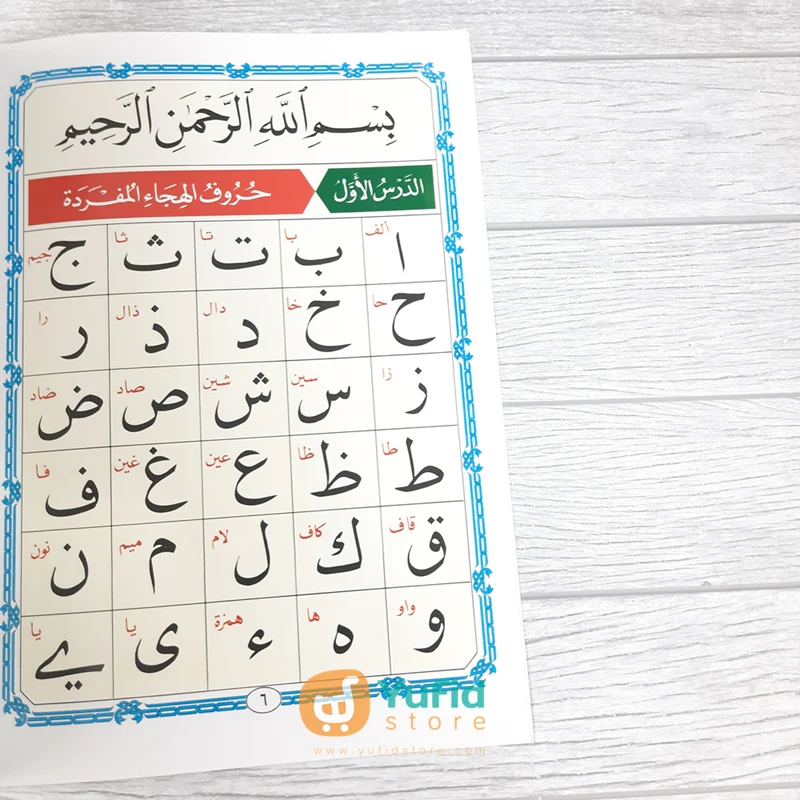 بِسْمِ ٱللَّهِ ٱلرَّحْمَٰنِ ٱلرَّحِيمِ
الدَّرْسُ الأَوَّلُ حُرُوفُ الهِجَاءِ المُفْرَدَة
ألف ا با ب تا ت ثا ث جيم ج
حا ح خا خ دال د ذال ذ را ر
زا ز سين س شين ش صاد ص ضاد ض
طا ط ظا ظ عين ع غين غ فا ف
قاف ق كاف ك لام ل ميم م نون ن
واو و ها ه همزة ء يا ى يا ے
٦
Yufid
store
www.yufidstore.com